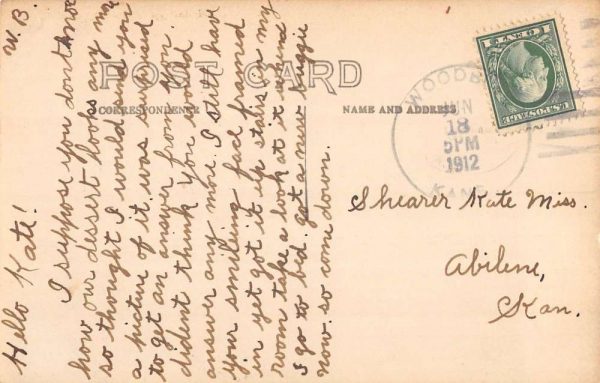 W.B.
Hello Kate!
I suppose you dont know
how our dessert looks any more
so thought I would send you
a picture of it. was surprised
to get an answer from you.
dident think you would
answer any more. I still have
your smiling face framed
in yet got it up stairs in my
room take a look at it when
I go to bed. got a new buggie
now so come down.
POST CARD
CORRESPONDENCE
NAME AND ADDRESS
WOODB
JUN
18
5PM
1912
KANS
U.S. POSTAGE
1 CENT 1
Shearer Kate Miss.
Abilene,
Kan.